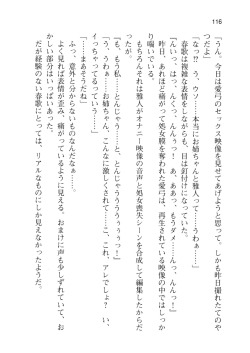 116
「うん。今日は愛弓のセックス映像を見せてあげようと思って。しかも昨日撮れたてのや
つだよ」
「な……!?　う、ウソ……本当にお姉ちゃんと雅人って……うわぁ……」
春歌は複雑な表情をしながらも、目は釘付けになっていた。
昨日、あれほど痛がって処女膜を奪われた愛弓は、再生されている映像の中ではしっか
り喘いでいる。
「んいっ、はっ、んくっ、んんぅっ！　あ、ああっ、もうダメ……んっ、んんっ！」
もちろんそれは雅人がオナニー映像の音声と処女喪失シーンを合成して編集したからだ
「も、もう私……とんじゃう……と、とんじゃうううぅぅぅっ！」
「う、うわぁ……お姉ちゃん、こんなに激しくされて……こ、これ、アレでしょ？　い、
イっちゃってるっていう……」
「……まあそうだね」
ふっ、意外と分からないもんだな。
よく見れば表情が歪み、痛がっているように見えるし、おまけに声も少しずれていて、お
かしい部分はいっぱいあった。
だが経験のない春歌にとっては、リアルなものにし
か見えなかったようだ。